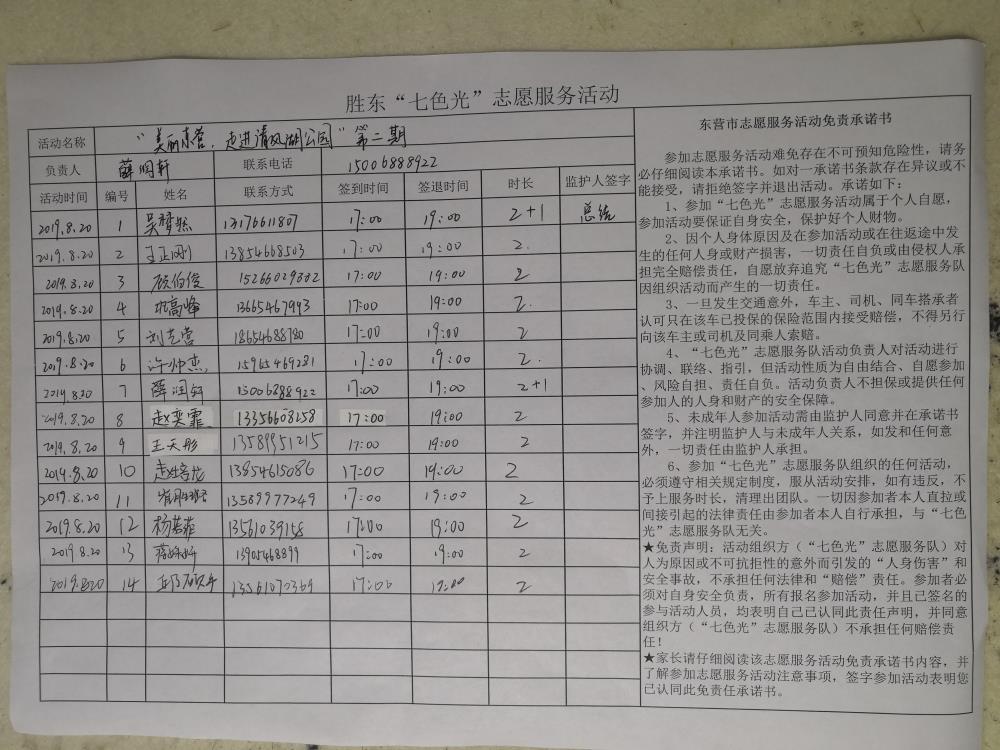 胜东“七色光”志愿服务活动
活动名称 “美丽东营，走进清风湖公园”第二期
负责人 薛润轩 联系电话 15006888922
活动时间 编号 姓名 联系方式 签到时间 签退时间 时长 监护人签字
2019.8.20 1 吴梦然 13176611807 17:00 19:00 2+1 总结
2019.8.20 2 王正刚 13854668503 17:00 19:00 2.
2019.8.20 3 顾伯俊 15266029302 17:00 19:00 2
2019.8.20 4 高峰 13665467993 17:00 19:00 2.
2019.8.20 5 刘志营 18654688780 17:00 19:00 2
2019.8.20 6 许帅杰 15965469281 17:00 19:00 2.
2019.8.20 7 薛润轩 15006888922 17:00 19:00 2+1
2019.8.20 8 赵奕霏 13356608258 17:00 19:00 2
2019.8.20 9 王天彤 13589951215 17:00 19:00 2
2019.8.20 10 13854615086 17:00 19:00 2
2019.8.20 11 13589977249 17:00 19:00 2
2019.8.20 12 杨若菲 13561039158 17:00 19:00 2
2019.8.20 13 13905468899 17:00 19:00 2
2019.8.20 14 13561070369 17:00 19:00 2
东营市志愿服务活动免责承诺书
参加志愿服务活动难免存在不可预知危险性，请务
必仔细阅读本承诺书。如对一承诺书条款存在异议或不
能接受，请拒绝签字并退出活动。承诺如下：
1、参加“七色光”志愿服务活动属于个人自愿，
参加活动要保证自身安全，保护好个人财物。
2、因个人身体原因及在参加活动或在往返途中发
生的任何人身或财产损害，一切责任自负或由侵权人承
担完全赔偿责任，自愿放弃追究“七色光”志愿服务队
因组织活动而产生的一切责任。
3、一旦发生交通意外，车主、司机、同车搭承者
认可只在该车已投保的保险范围内接受赔偿，不得另行
向该车主或司机及同乘人索赔。
4、“七色光”志愿服务队活动负责人对活动进行
协调、联络、指引，但活动性质为自由结合、自愿参加
、风险自担、责任自负。活动负责人不担保或提供任何
参加人的人身和财产的安全保障。
5、未成年人参加活动需由监护人同意并在承诺书
签字，并注明监护人与未成年人关系，如发和任何意
外，一切责任由监护人承担。
6、参加“七色光”志愿服务队组织的任何活动，
必须遵守相关规定制度，服从活动安排，如有违反，不
予上服务时长，清理出团队。一切因参加者本人直拉或
间接引起的法律责任由参加者本人自行承担，与“七色
光”志愿服务队无关。
★免责声明：活动组织方（“七色光”志愿服务队）对
人为原因或不可抗拒性的意外而引发的“人身伤害”和
安全事故，不承担任何法律和“赔偿”责任。参加者必
须对自身安全负责，所有报名参加活动，并且已签名的
参与活动人员，均表明自己已认同此责任声明，并同意
组织方（“七色光”志愿服务队）不承担任何赔偿责
任！
★家长请仔细阅读该志愿服务活动免责承诺书内容，并
了解参加志愿服务活动注意事项，签字参加活动表明您
已认同此免责任承诺书。